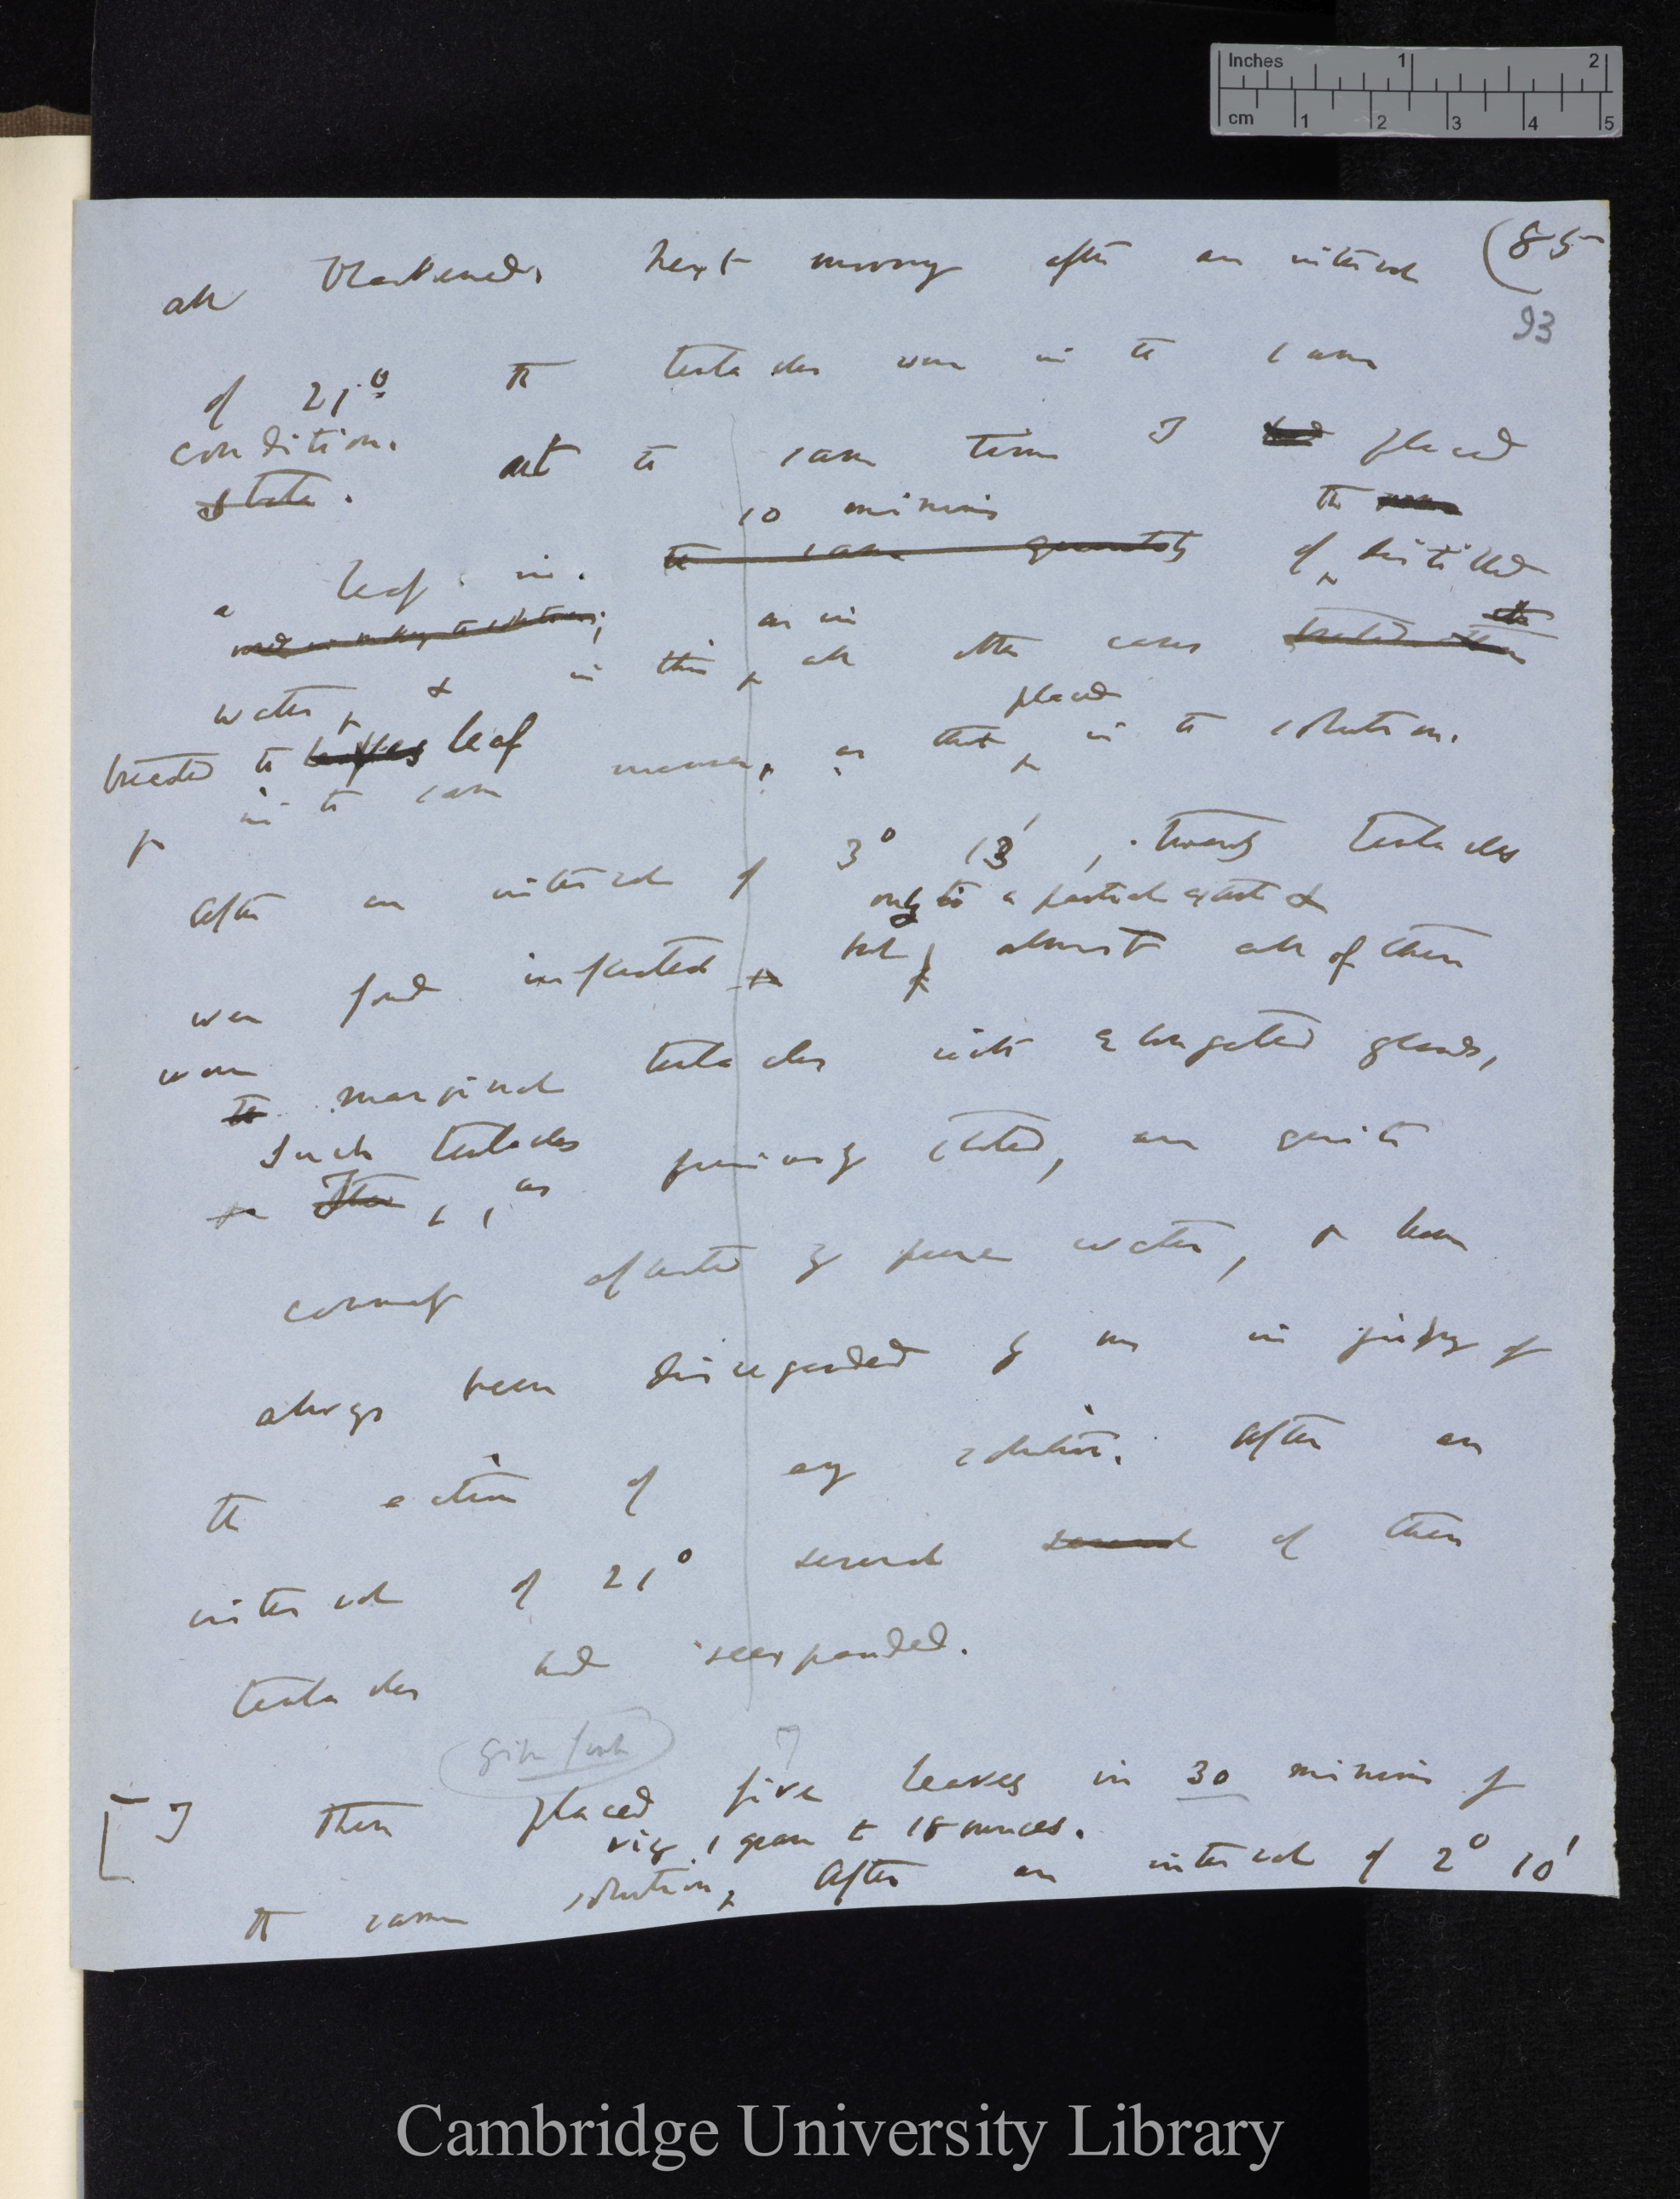 Inches 1 2
cm 1 2 3 4 5
(85
93
all blackened. Next morning after an interval
of 21° the tentacles were in the same
condition.
state. At the same time I had placed
10 minims the
a leaf in the same quantity of distilled
used in making the solutions; as in
water, & in this all other cases treated the
placed
treated the leaves leaf manner, as that in the solution.
in the same
After an interval of 3° 13', twenty tentacles
only to a partial extent &
were found inflected but almost all of them
were
the marginal tentacles with elongated glands,
Such tentacles
These, as previously stated, are quite
commonly affected by pure water, & have
always been disregarded by me in judging of
the action of any solution. After an
interval of 21° several several of these
tentacles had reexpanded.
give first
[I then placed five leaves in 30 minims of
viz 1 grain to 18 ounces.
the same solution, After an interval of 2° 10'
Cambridge University Library